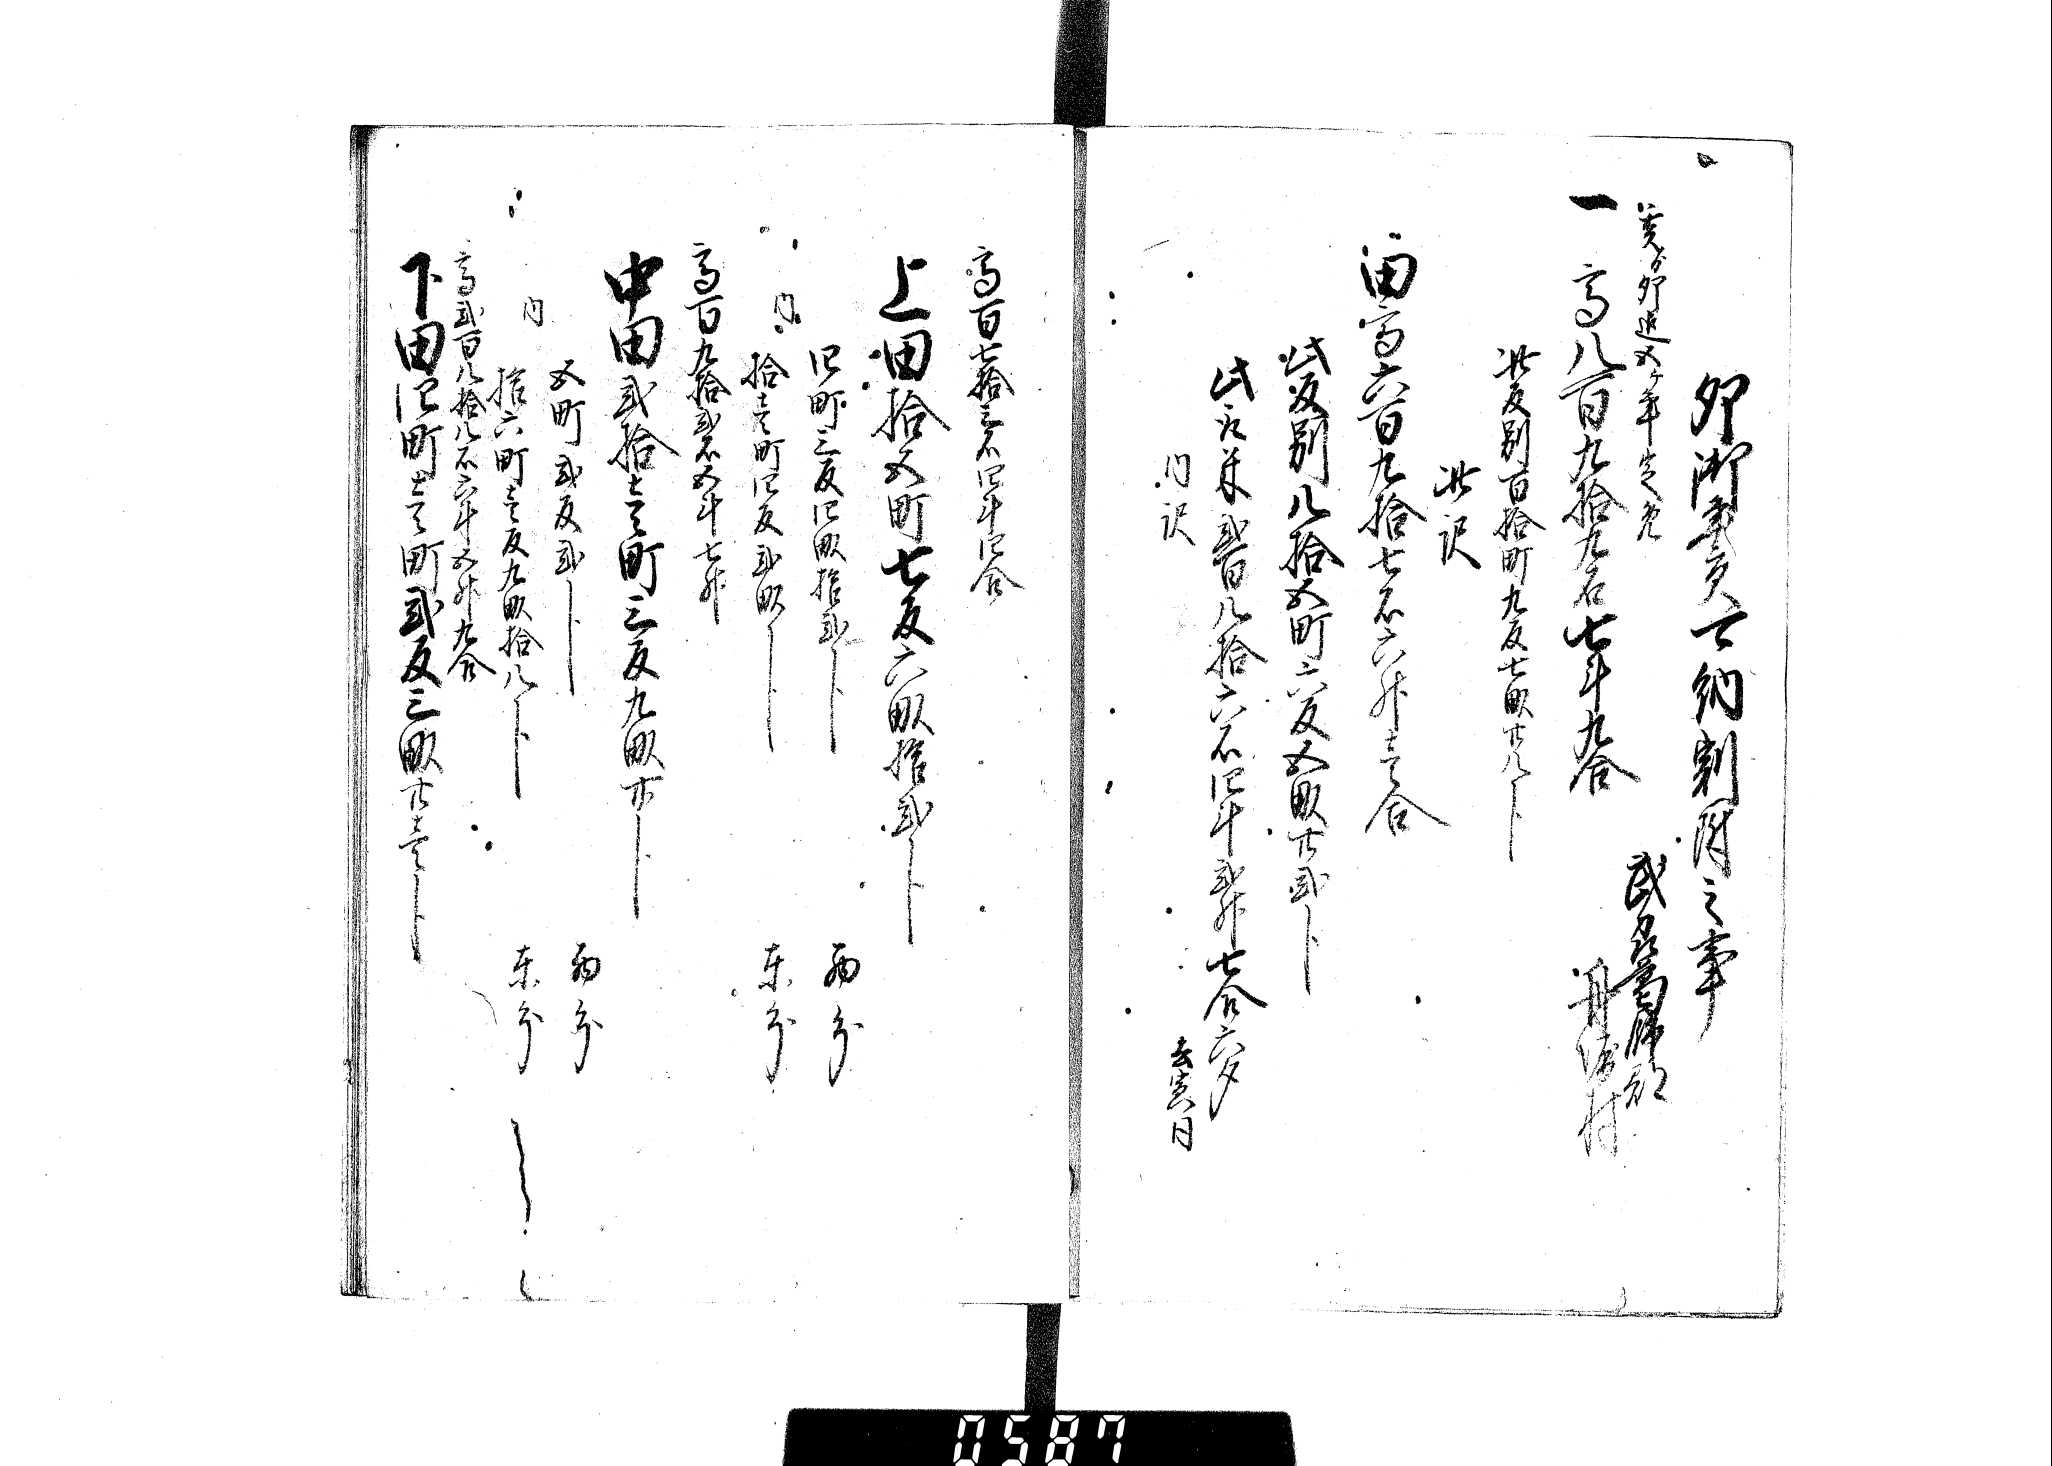 卯御年貢可納割附之事
武州葛飾郡
丹後村
亥ゟ卯迄五ケ年定免
一 高八百九拾九石七斗九合
此反別百拾町九反七畝廿八卜
此訳
田高六百九拾七石六升壱合
此反別八拾五町六反五畝廿弐卜
此取米弐百八拾六石四斗弐升七合六夕
去寅同
内訳
高百七拾三石四斗四合
上田拾五町七反六畝拾弐卜
四町三反四畝拾弐卜 西分
内
拾壱町四反弐畝卜 東分
高百九拾弐石五斗七升
中田弐拾壱町三反九畝廿卜
五町弐反弐卜 西分
内
拾六町壱反九畝拾八卜 東分
高弐百八拾八石六斗五升九合
下田四町壱町弐反三畝廿壱卜
0587